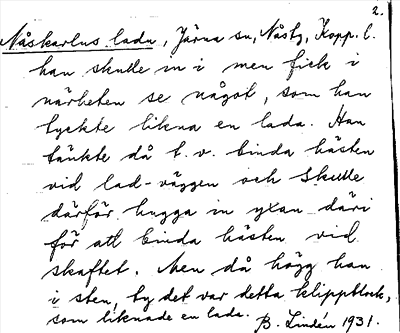 2.
Nåskarlus lada, Järna sn, Nåstg, Kopp. l.
han skulle in i men fick i
närheten se något, som han
tyckte likna en lada. Han
tänkte då t. v. binda hästen
vid lad-väggen och skulle
därför hugga in yxan däri
för att binda hästen vid
skaftet. Men då högg han
i sten, ty det var detta klippblock,
som liknade en lada. B. Lindén 1931.